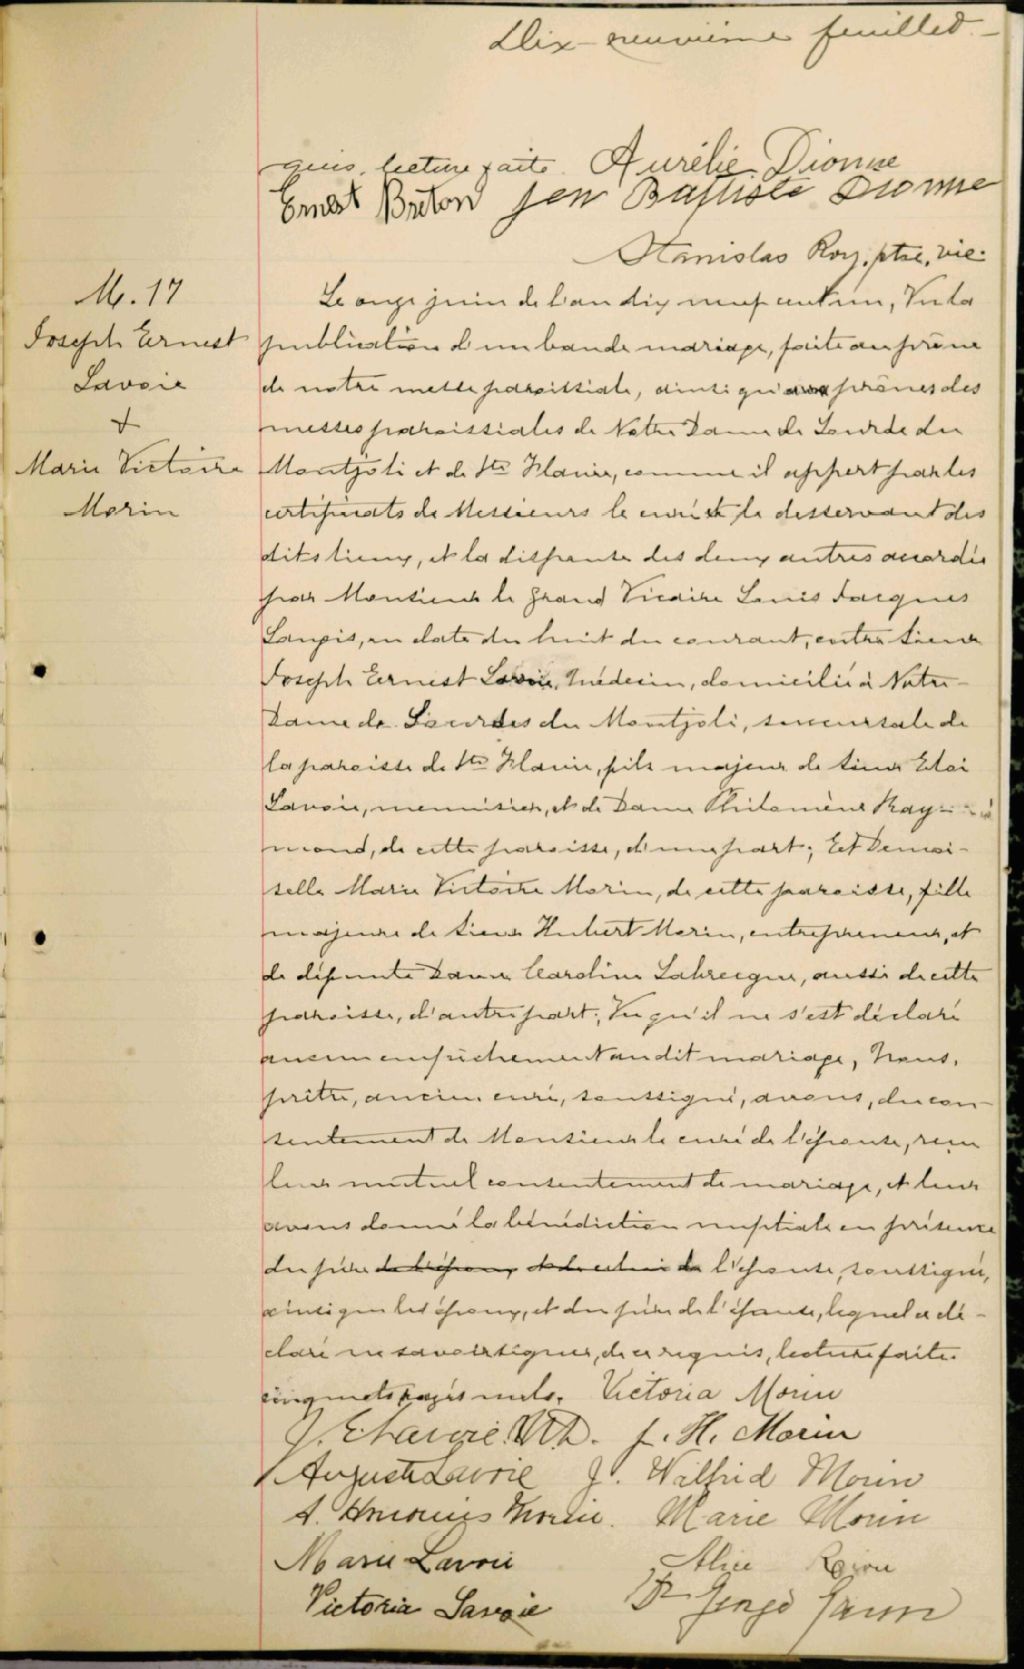 Dix-neuvième feuillet.-
quis, lecture faite. Aurélie Dionne
Ernest Breton Jen Baptiste Dionne
Stanislas Roy, ptre, vic.
M. 17
Joseph Ernest
Lavoie
+
Marie Victoire
Morin
Le onze juin de l'an dix neuf cent un, Vu la
publication d'un ban de mariage, faite au prône
de notre messe paroissiale, ainsi qu'aux prônes des
messes paroissiales de Notre Dame de Lourde du
Montjoli et de Ste Flavie, comme il appert par les
certificats de Messieurs le curé et le desservant des
dits lieux, et la dispense des deux autres accordée
par Monsieur le Grand Vicaire Louis Jacques
Langis, en date du huit du courant, entre Sieur
Joseph Ernest Lavoie, Médecin, domicilié à Notre-
Dame de Lourdes du Montjoli, succursale de
la paroisse de Ste Flavie, fils majeur de Sieur Eloi
Lavoie, menuisier, et de Dame Philomène Ray-
mond, de cette paroisse, d'une part; Et Demoi-
selle Marie Victoire Morin, de cette paroisse, fille
majeure de Sieur Hubert Morin, entrepreneur, et
de défunte Dame Caroline Labrecque, aussi de cette
paroisse, d'autre part; Vu qu'il ne s'est déclaré
aucun empêchement au dit mariage, Nous,
prêtre, ancien curé, soussigné, avons, du con-
sentement de Monsieur le curé de l'épouse, reçu
leur mutuel consentement de mariage, et leur
avons donné la bénédiction nuptiale en présence
du père de l'époux et de celui de l'épouse, soussigné,
ainsi que les époux, et du père de l'épouse, lequel a dé-
claré ne savoir signer, de ce requis, lecture faite.
cinq mots rayés nuls. Victoria Morin
J. E Lavoie. M.D. J. H. Morin
Auguste Lavoie J. Wilfrid Morin
Morin. Marie Morin
Marie Lavoie Alice
Victoria Lavoie